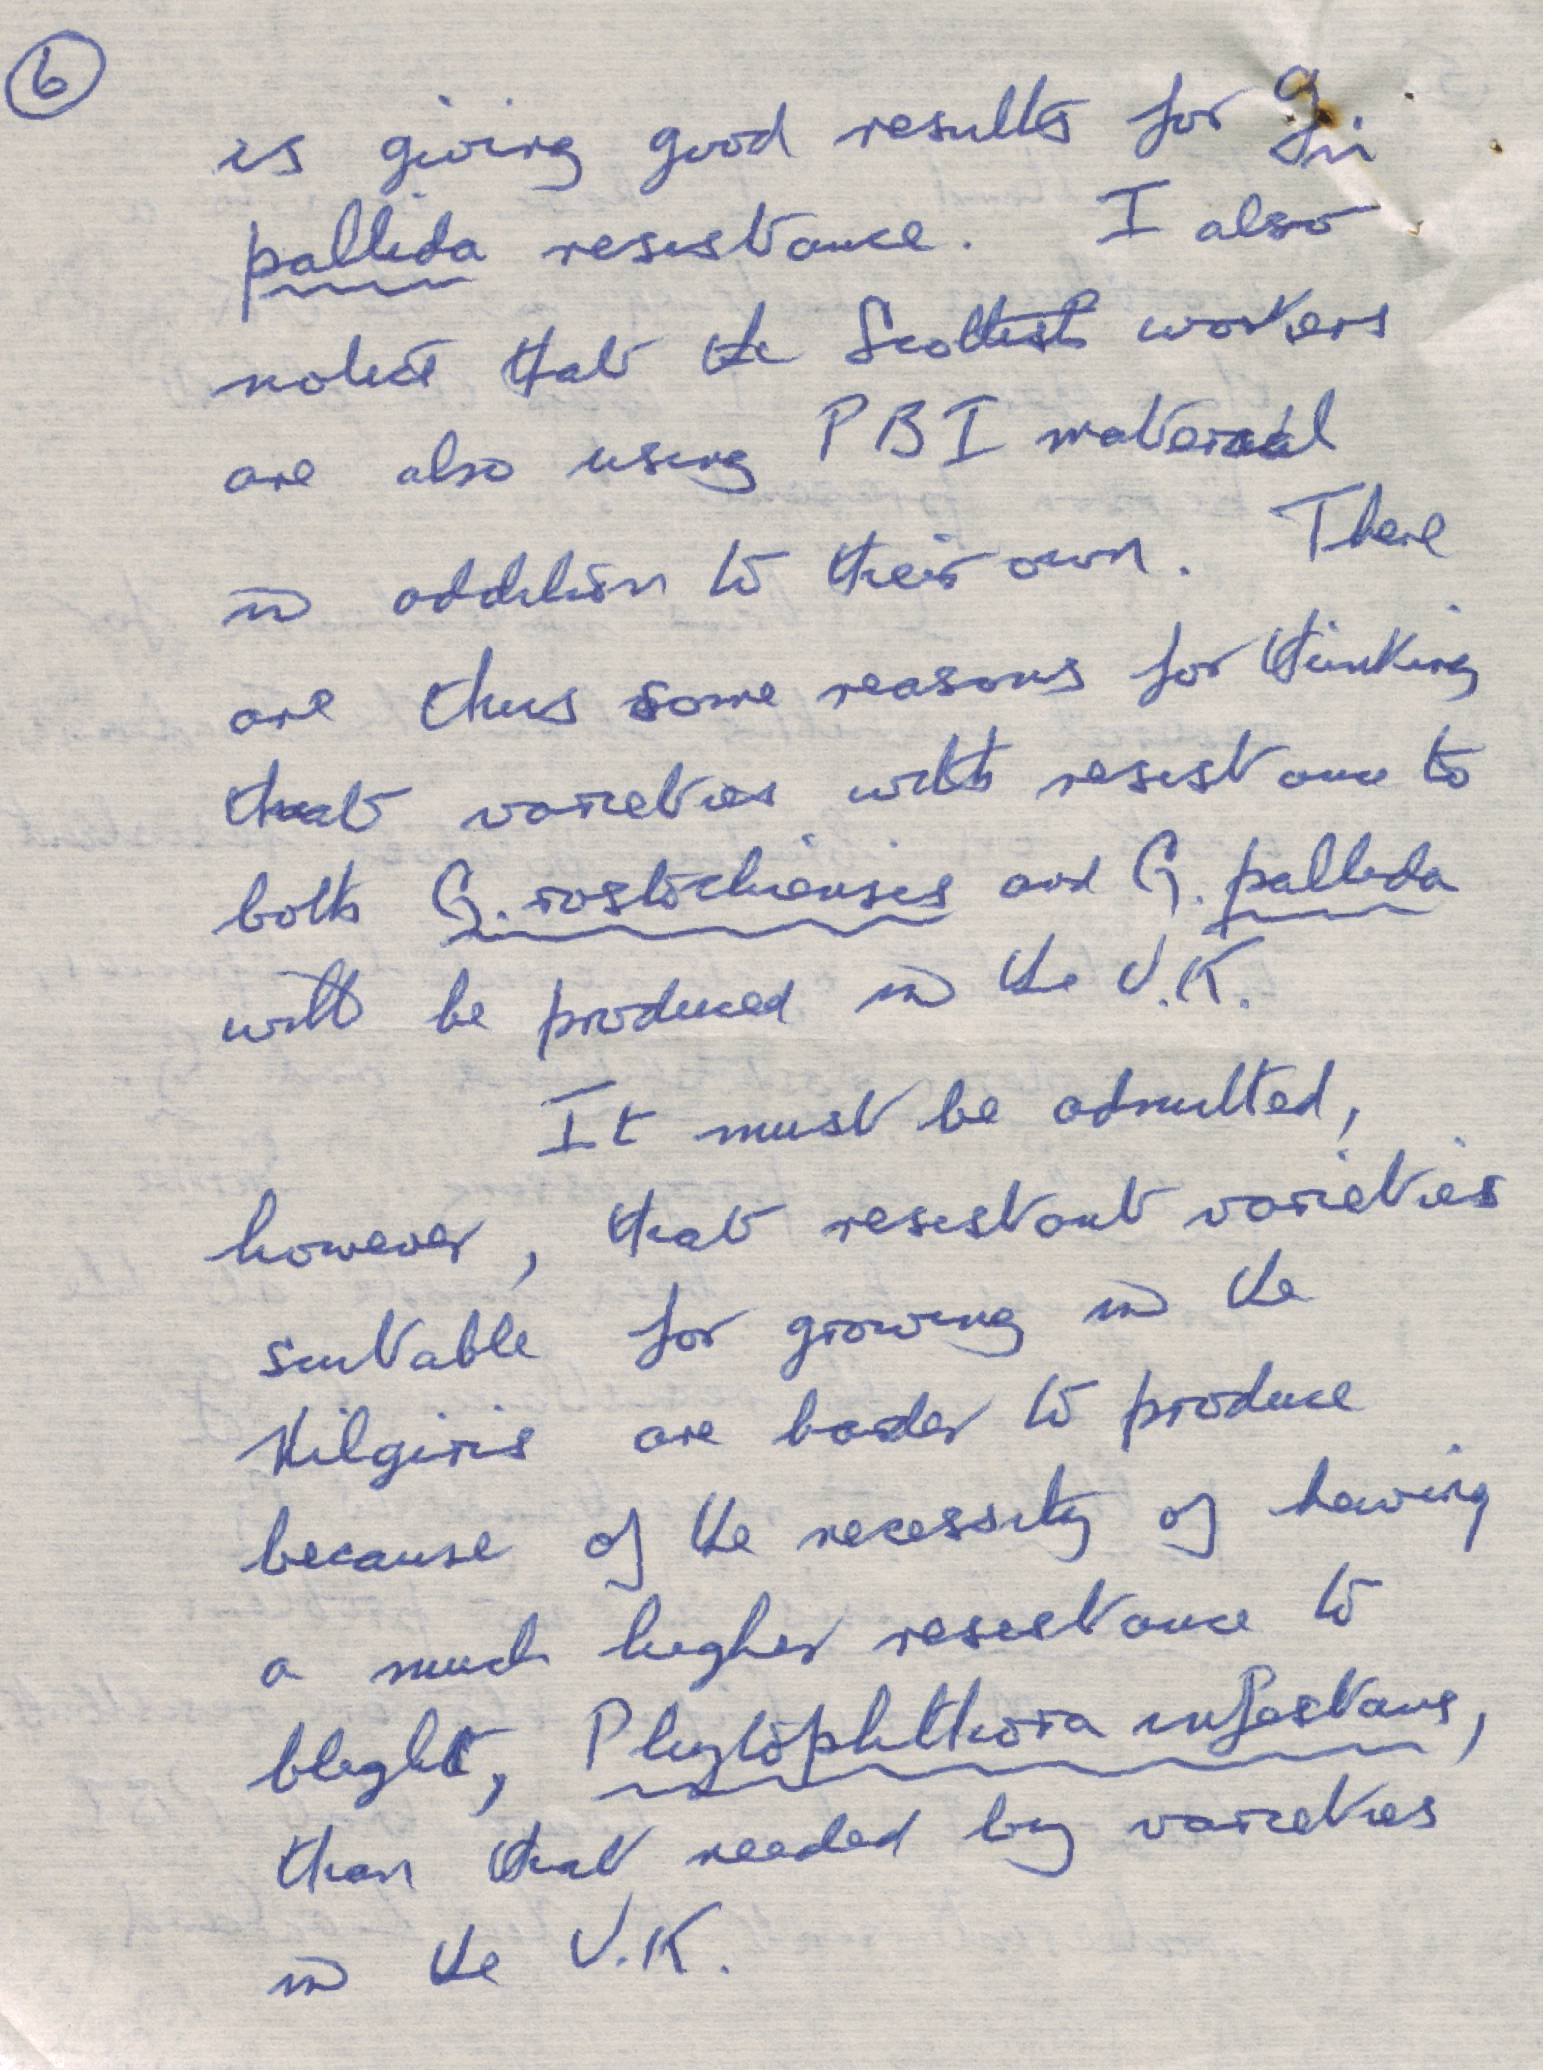 6
is giving good results for G.
pallida resistance. I also
notice that the Scottish workers
are also using PBI material
in addition to their own. There
are thus some reasons for thinking
that varieties with resistance to
both G. rostochiensis and G. pallida
will be produced in the U.K.
It must be admitted,
however, that resistant varieties
suitable for growing in the
Nilgiris are harder to produce
because of the necessity of having
a much higher resistance to
blight, Phytophthora infestans,
than that needed by varieties
in the U.K.